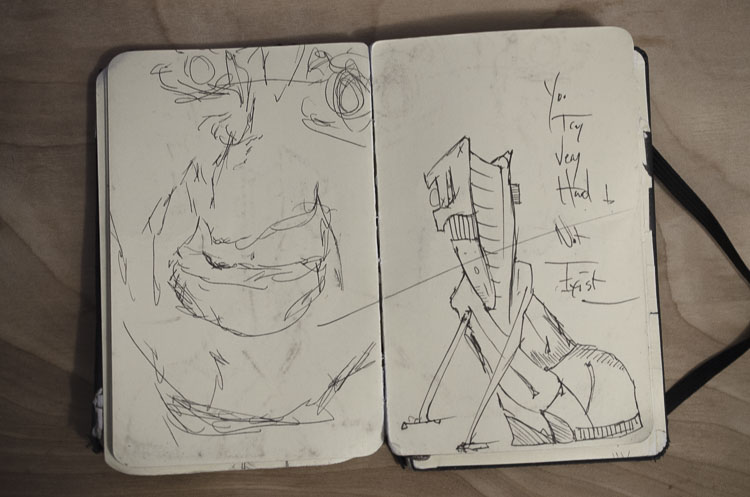 You
Try
Very
Hard to
Not
Exist